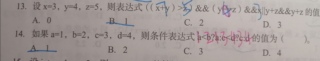 13. 设x=3，y=4，z=5，则表达式((x+y)>z)&&(y==z)&&x||y+z&&y+z的值
A. 0 B. 1 C. 2 D. 3
14. 如果a=1，b=2，c=3，d=4，则条件表达式的值为( )。
A. 1 B. 2 C. 3 D. 4